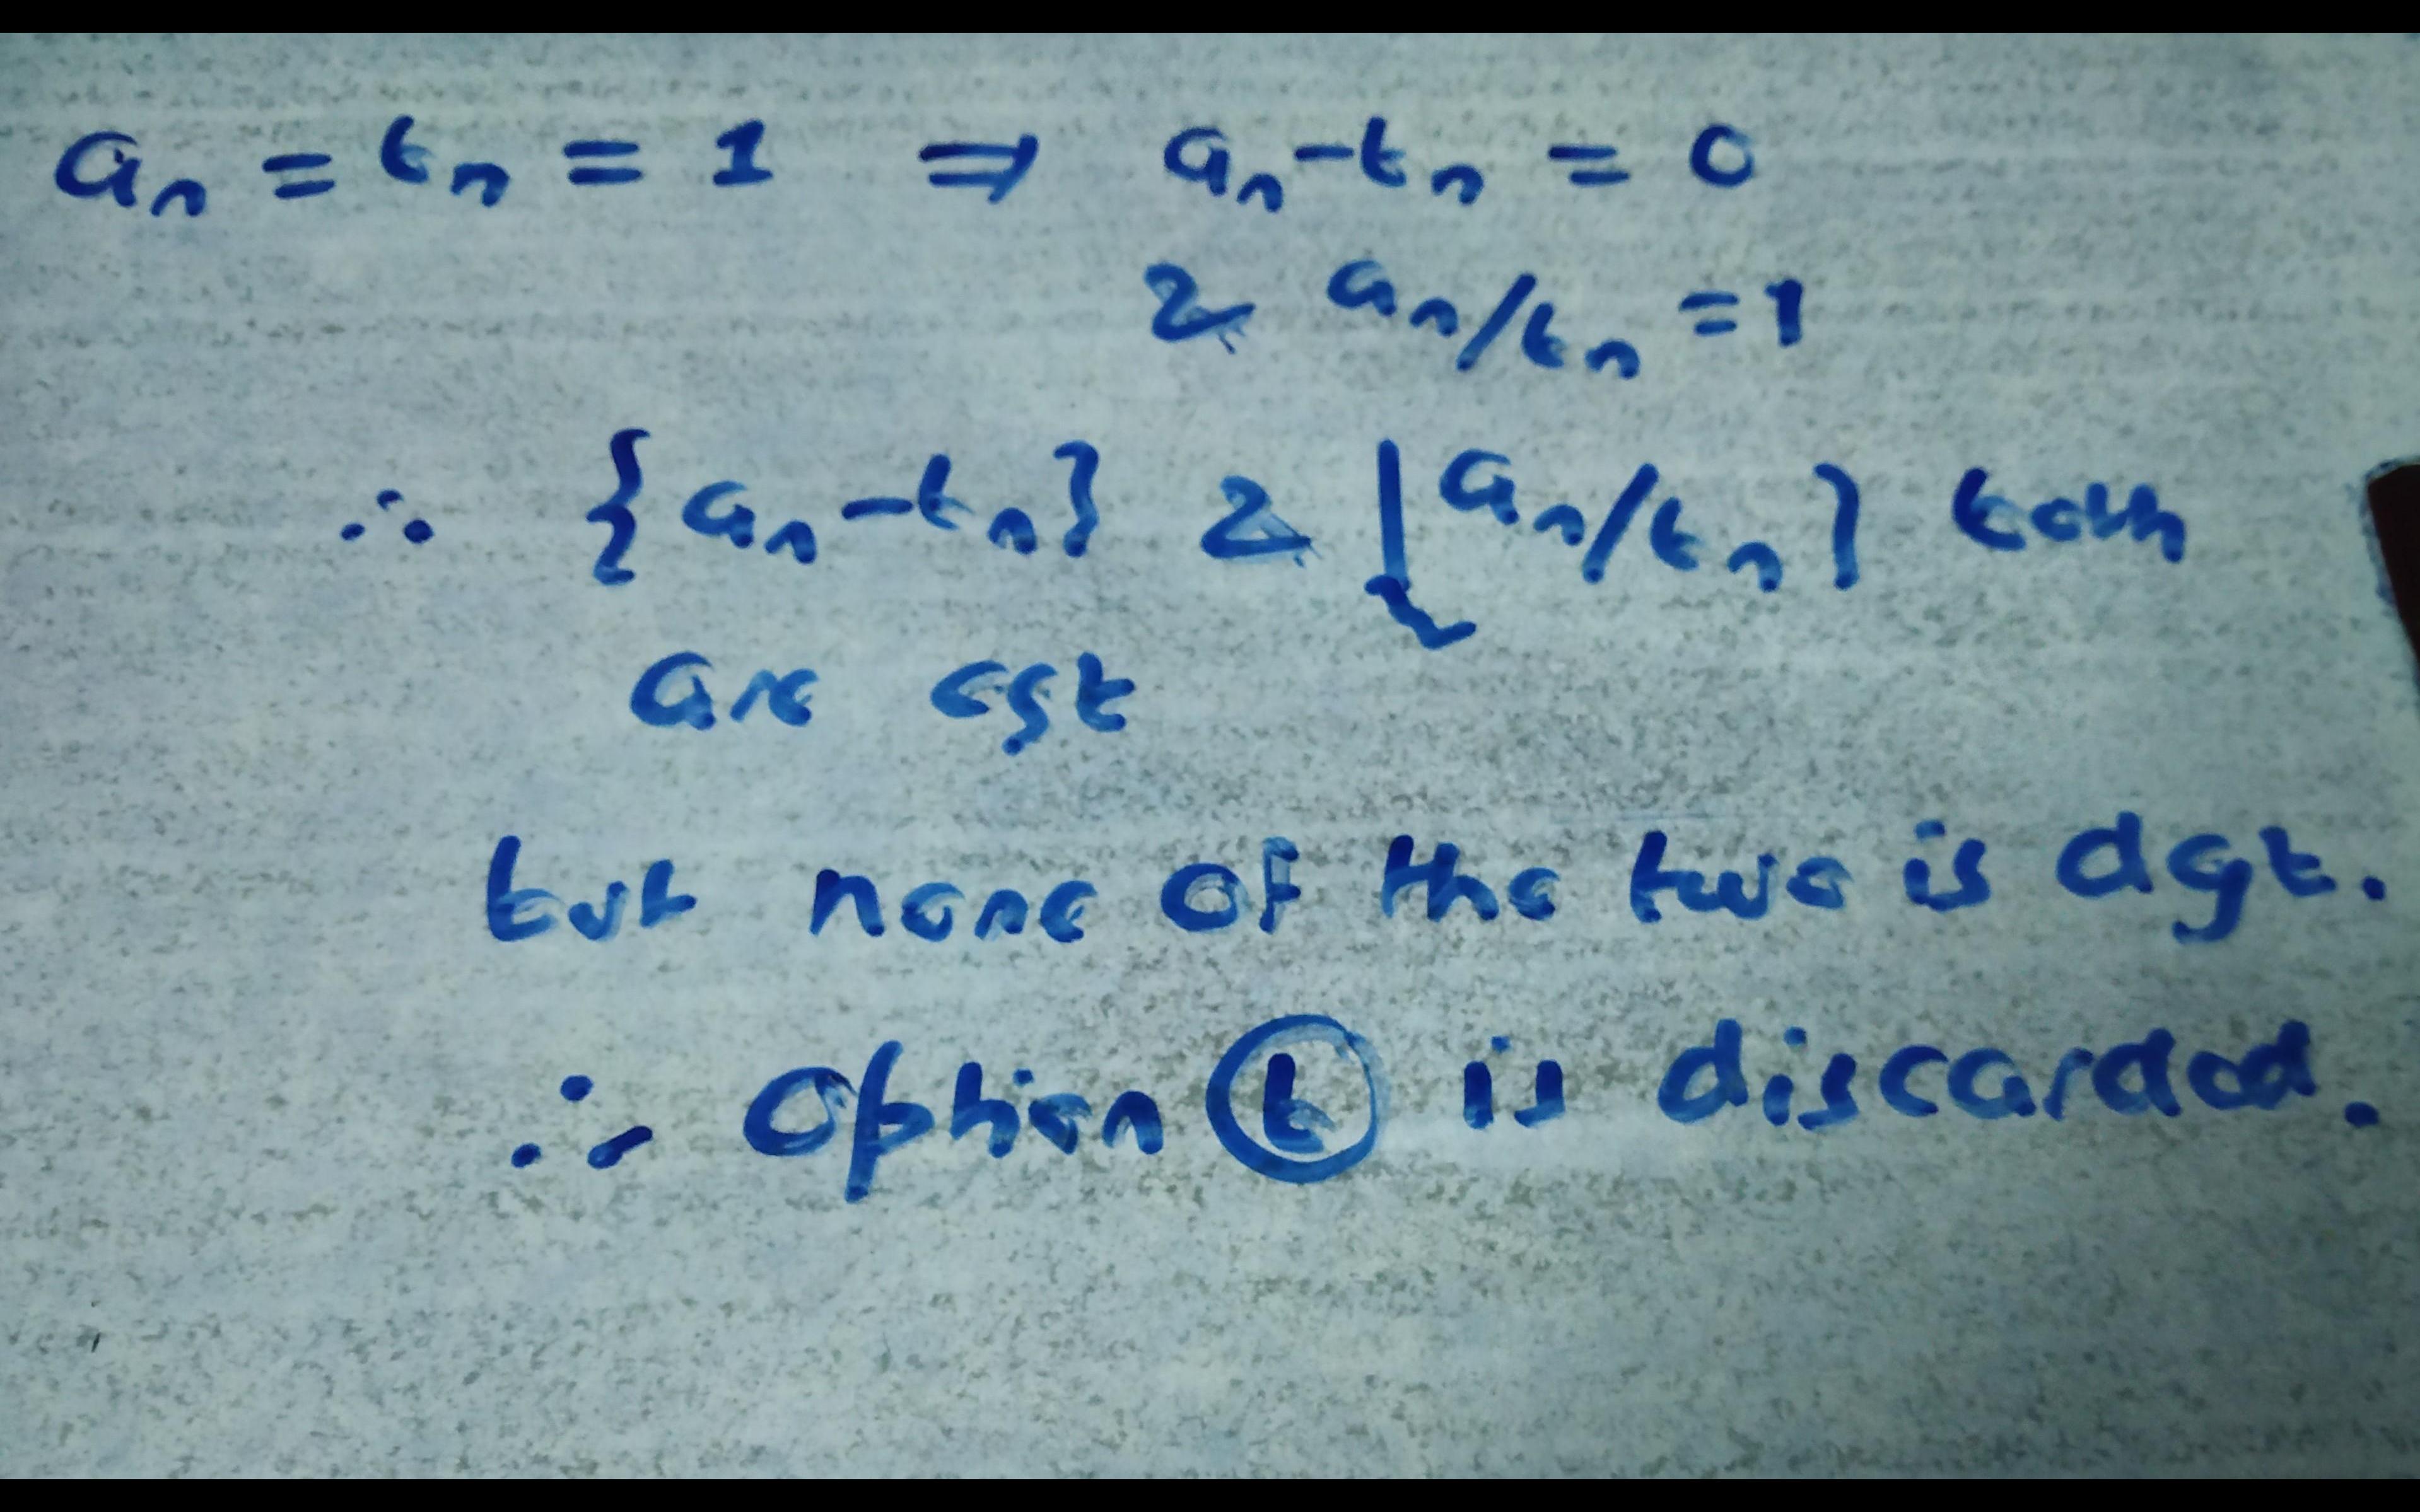 aₙ = bₙ = 1 ⇒ aₙ - bₙ = 0
& aₙ/bₙ = 1
∴ {aₙ - bₙ} & {aₙ/bₙ} both
are cgt
but none of the two is dgt.
∴ Option ⓑ is discarded.